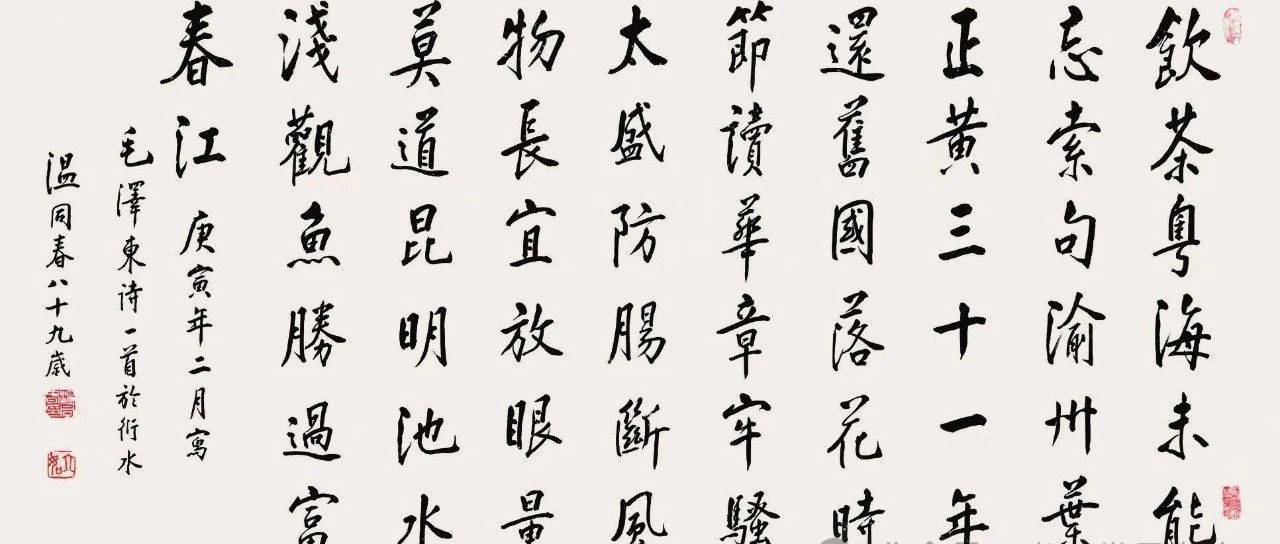 飲茶粵海未能
忘索句渝州葉
正黄三十一年
還舊國落花時
節讀華章牢騷
太盛防腸斷風
物長宜放眼量
莫道昆明池水
淺觀魚勝過富
春江 庚寅年二月寫
毛澤東诗一首於衍水
温同春八十九歲